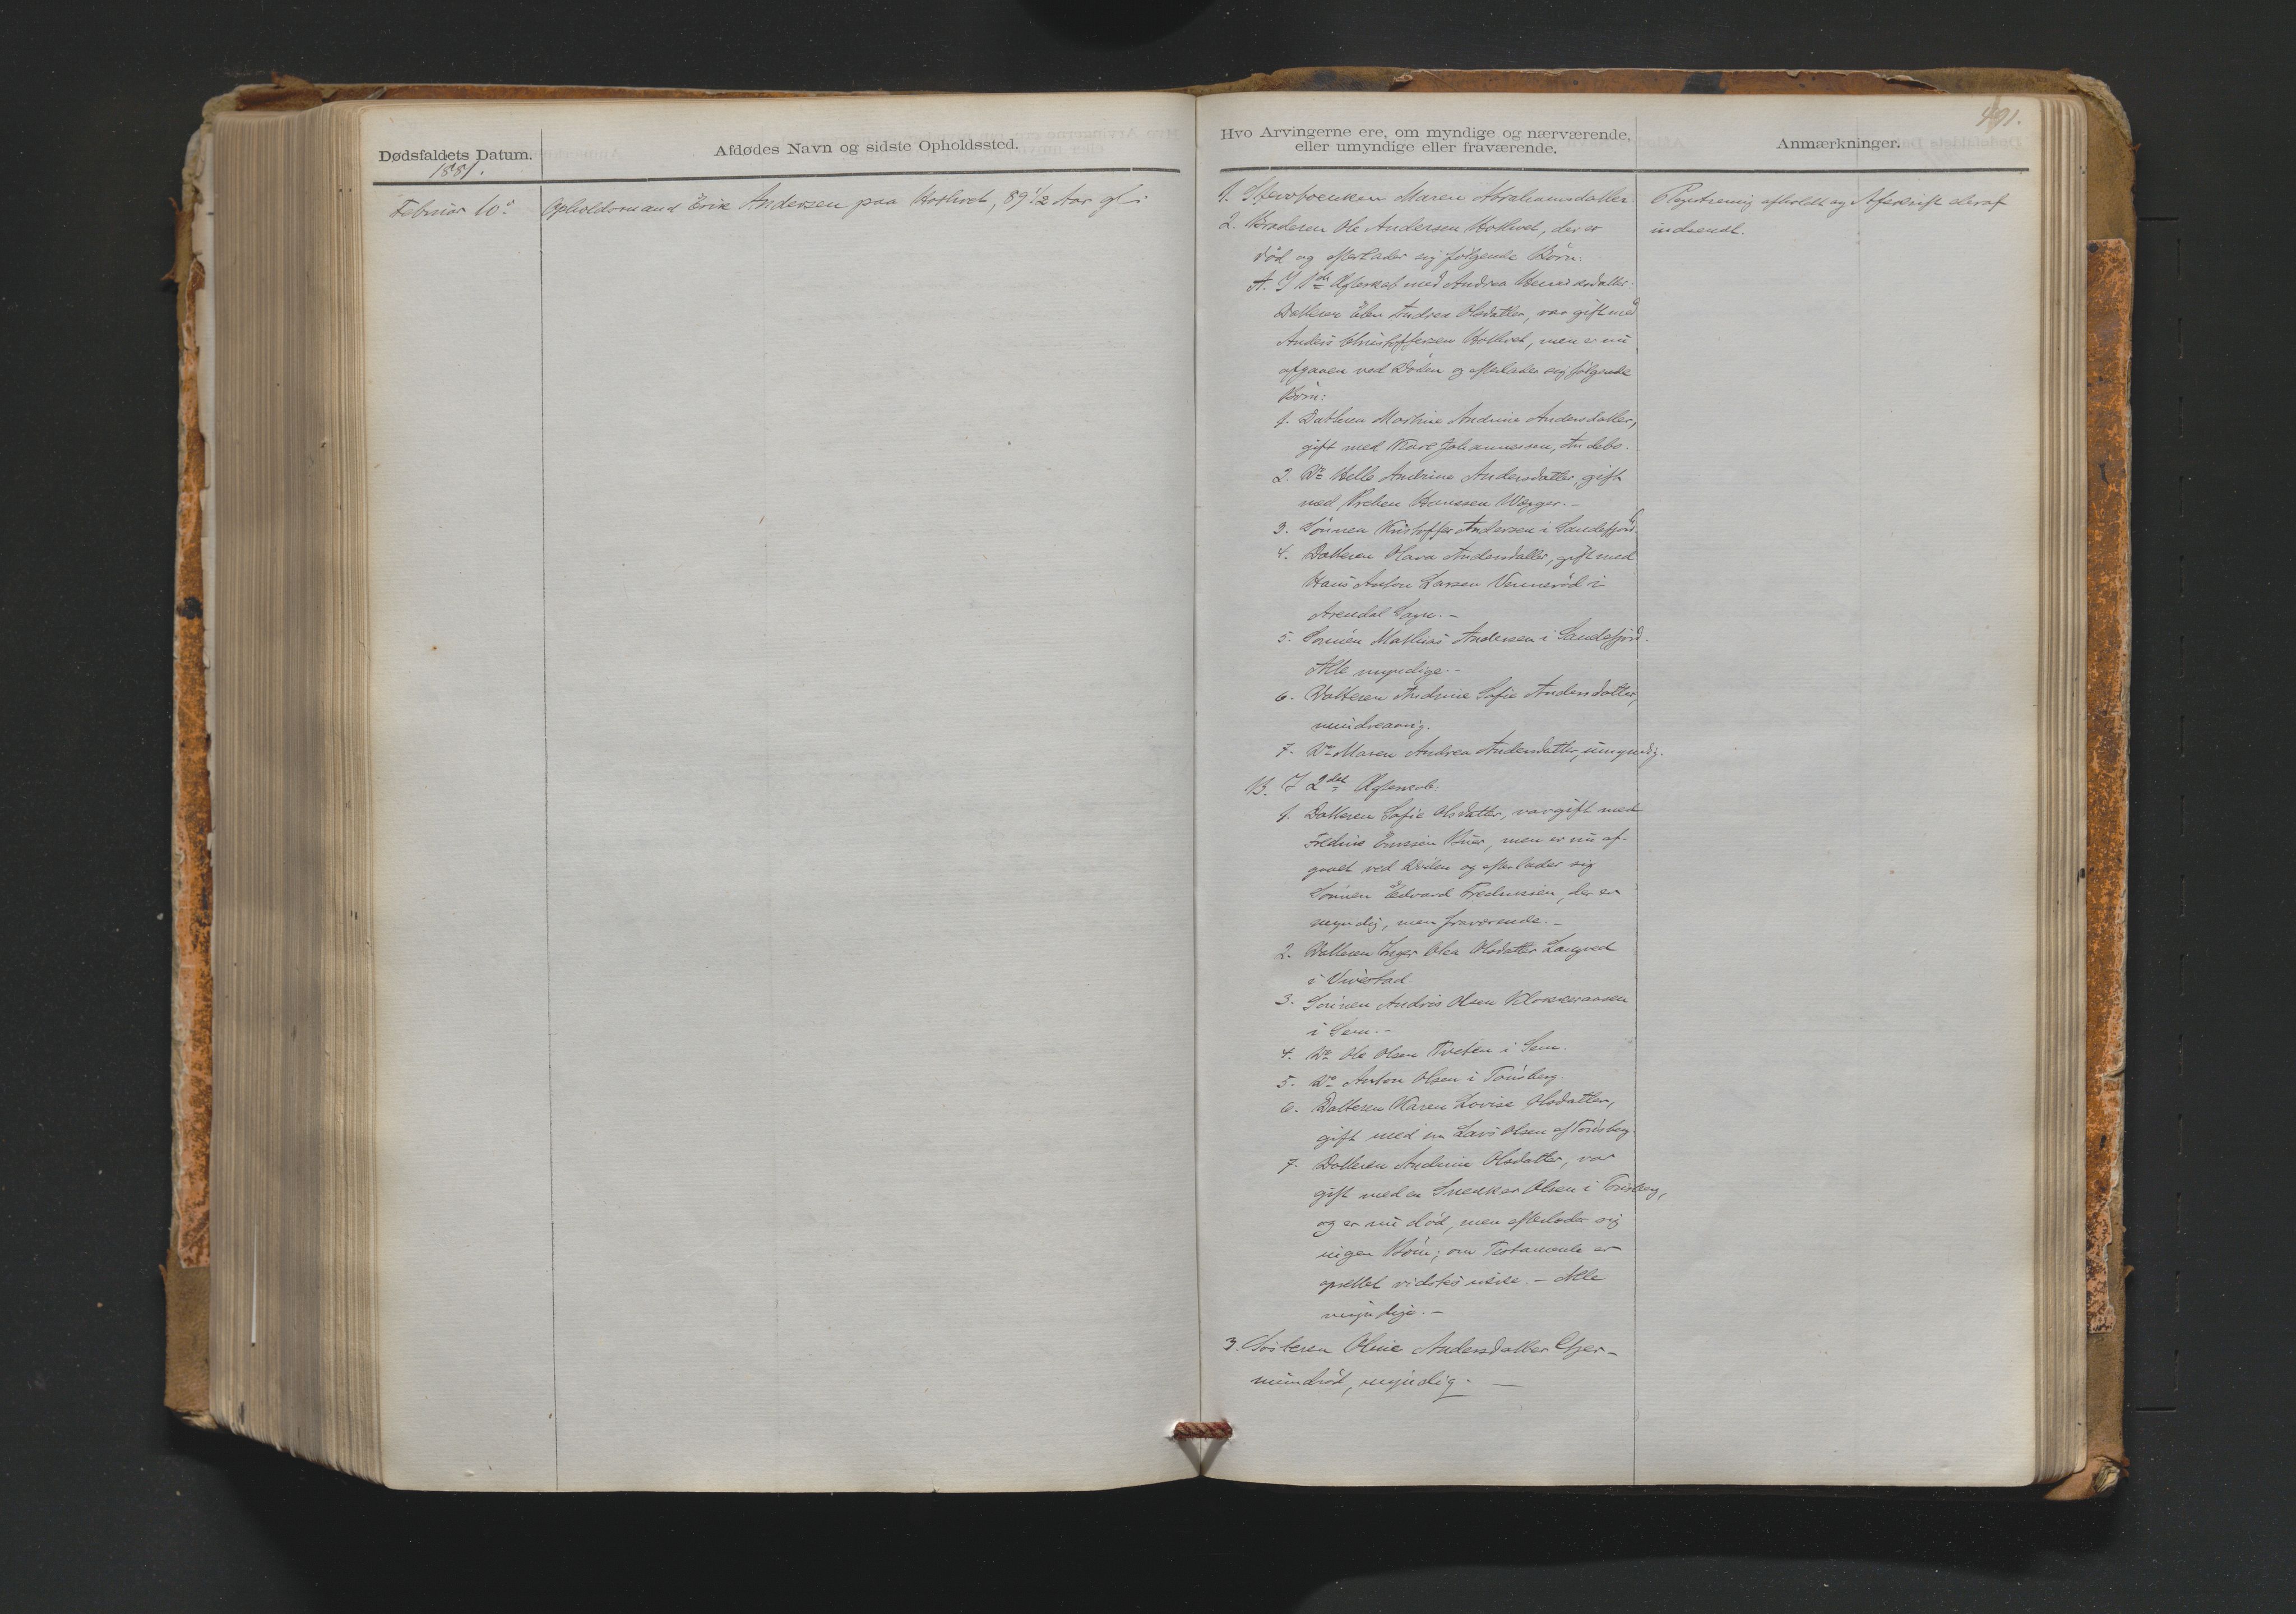 491.
Dødsfaldets Datum.
1881.
Afdødes Navn og sidste Opholdssted.
Hvo Arvingerne ere, om myndige og nærværende,
eller umyndige eller fraværende.
Anmærkninger.
Februar 10.
Opholdsmand Erik Andersen paa Holhvet, 89 1/2 Aar gl.
1. Maren Abrahamsdatter
2. Broderen Ole Andersen Holhvet, der er
død og efterlader sig følgende Børn:
A. I 1ste Ægteskab med Andrea Henriksdatter:
Datteren Elen Andrea Olsdatter, var gift med
Anders Christoffersen Holhvet, men er nu
afgaaen ved Døden og efterlader sig følgende
Børn:
1. Datteren Mathine Andrine Andersdatter,
gift med Johannessen, Andebo.
2. Do Helle Andrine Andersdatter, gift
med Hanssen
3. Sønnen Kristoffer Andersen i Sandefjord.
4. Datteren Olava Andersdatter, gift med
Hans Anton Larsen Vennerød i
Arendal Sogn. -
5. Sønnen Mathias Andersen i Sandefjord.
Alle myndige. -
6. Datteren Andrine Sofie Andersdatter,
mindreaarig.
7. Do Maren Andrea Andersdatter, umyndig.
B. I 2det Ægteskab:
1. Datteren Sofie Olsdatter, var gift med
men er nu af-
gaaet ved Døden og efterlader sig
Sønnen Edvard Fredriksen, der er
myndig, men fraværende. -
2. Datteren Inger Olea Olsdatter
i Vivestad.
3. Sønnen Andreas Olsen
i Sem. -
4. Do Ole Olsen Tveten i Sem.
5. Do Anton Olsen i Tønsberg.
6. Datteren Karen Lovise Olsdatter,
gift med en Lars Olsen af Tønsberg.
7. Datteren Andrine Olsdatter, var
gift med en Snekker Olsen i Tønsberg,
og er nu død, men efterlader sig
ingen Børn; om Testamente er
oprettet vidstes ikke. - Alle
myndige. -
3. Søsteren Oline Andersdatter Gjer-
mundrød, myndig. -
Registrering afholdt og Afskrift deraf
indsendt.